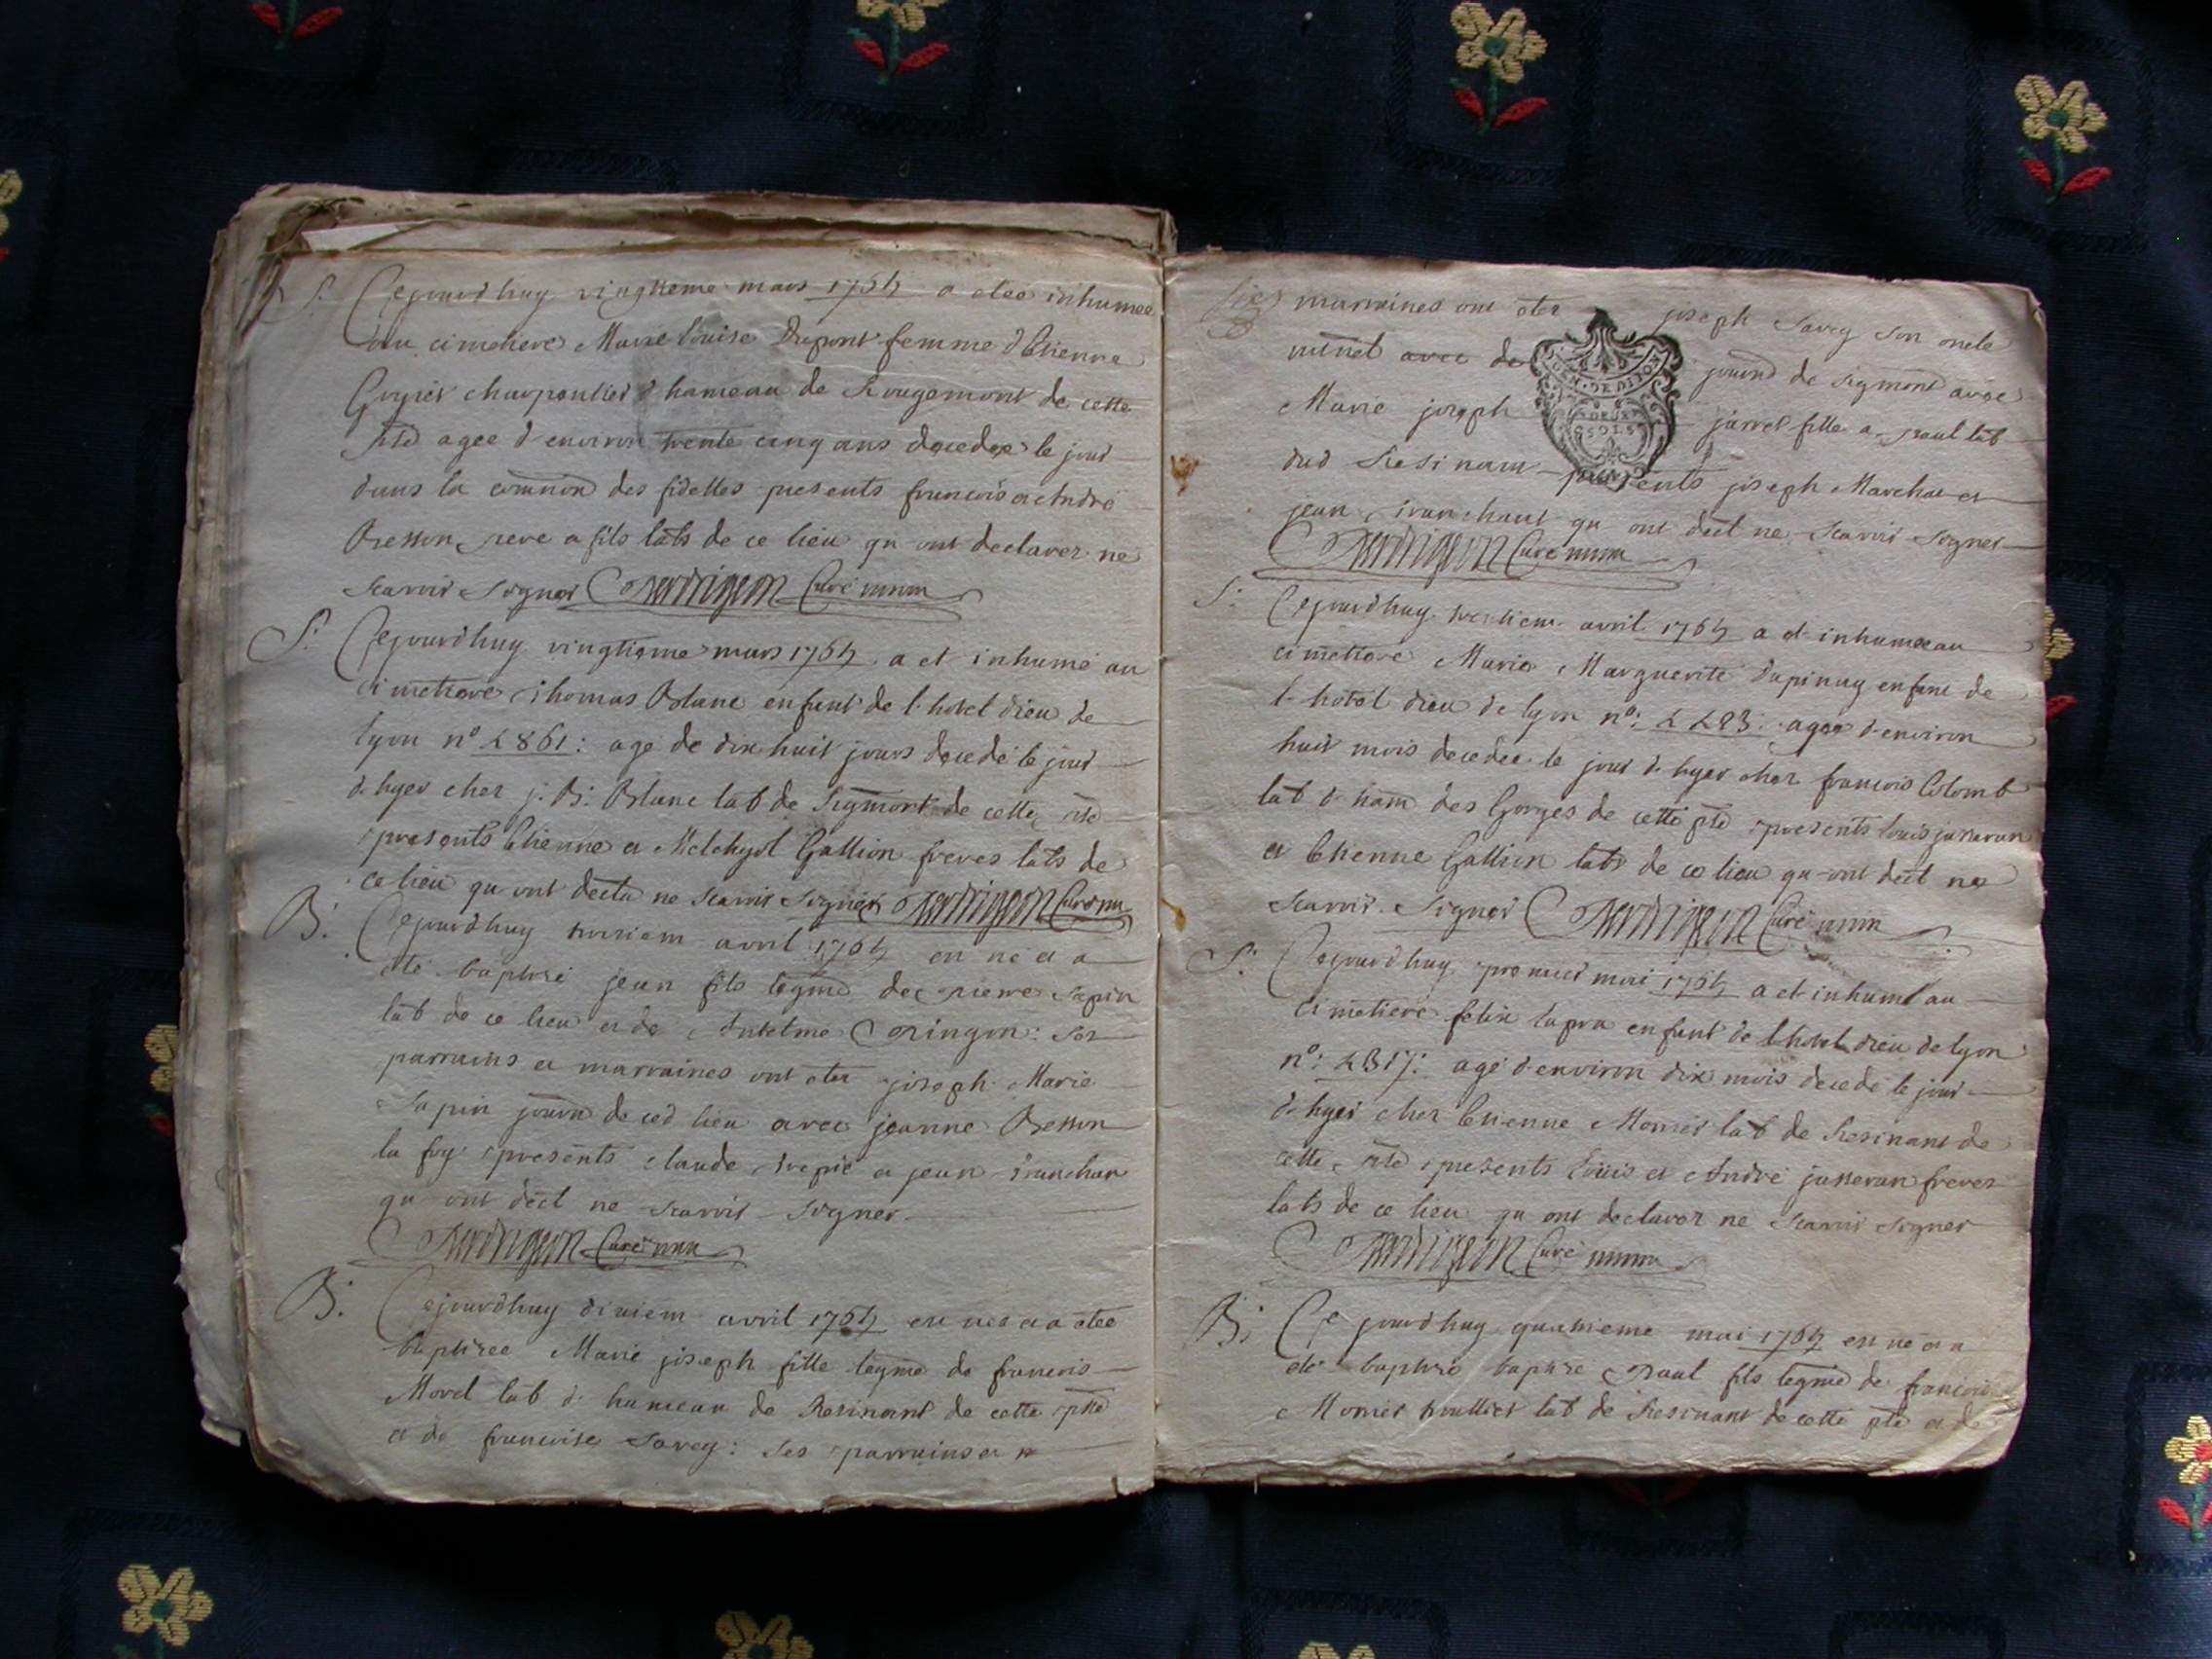 S. Cejourdhuy vingtieme mars 1764 a etée inhumée
au cimetiere Marie louise Dupont femme d'Etienne
charpentier d hameau de Rougemont de cette
psse agee d'environ trente cinq ans decedee le jour
dans la comnion des fidelles presents francois et André
Besson pere et fils labs de ce lieu qu ont declarer ne
scavoir signer Curé
S. Cejourdhuy vingtieme mars 1764 a eté inhumé au
cimetiere Thomas Blanc enfant de l'hotel dieu de
lyon n° 2861: agé de dix huit jours decedé le jour
d'hyer chez j. B. Blanc lab de de cette psse
presents Etienne et Melchyol Gallion freres labs de
ce lieu qu ont decla ne scavoir signer Curé
B. Cejourdhuy avril 1764 en né et a
eté baptisé jean fils legme de pierre Sapin
lab de ce lieu et de Antelme : ses
parrains et marraines ont eter joseph Marie
Sapin journ de ced lieu avec jeanne Besson
la foy presents claude et jean
qu ont decl ne scavoir signer
Curé
B. Cejourdhuy dixiem avril 1764 en nee et a etee
baptisee Marie joseph fille legme de francois
Morel lab d. hameau de Resinant de cette psse
et de francoise Savey: ses parrains et
marraines ont eter joseph Savey son oncle
avec de journ de avec
Marie joseph fille a paul lab
dud Resinan presents joseph Marchat et
jean qu ont decl ne scavoir signer
GEN. DE DIJON
DEUX
SOLS
Curé
S. Cejourdhuy avril 1764 a eté inhumee au
cimetiere Marie Marguerite Dupinay enfant de
l'hotel dieu de lyon n°: 2283: agee d'environ
huit mois decedee le jour d'hyer chez francois Colomb
lab d. ham des Gorges de cette psse presents louis jasseran
et Etienne Gallion labs de ce lieu qu ont decl ne
scavoir signer Curé
S. Cejourdhuy premier mai 1764 a eté inhumé au
cimetiere felix lapra enfant de l'hotel dieu de lyon
n°: 2317: agé d'environ dix mois decedé le jour
d'hyer chez Etienne Monier lab de Resinant de
cette psse presents louis et André jasseran freres
labs de ce lieu qu ont declarer ne scavoir signer
Curé
B. Cejourdhuy mai 1764 est né et a
eté baptisé baptise paul fils legme de francois
Monier lab de Resinant de cette psse et de